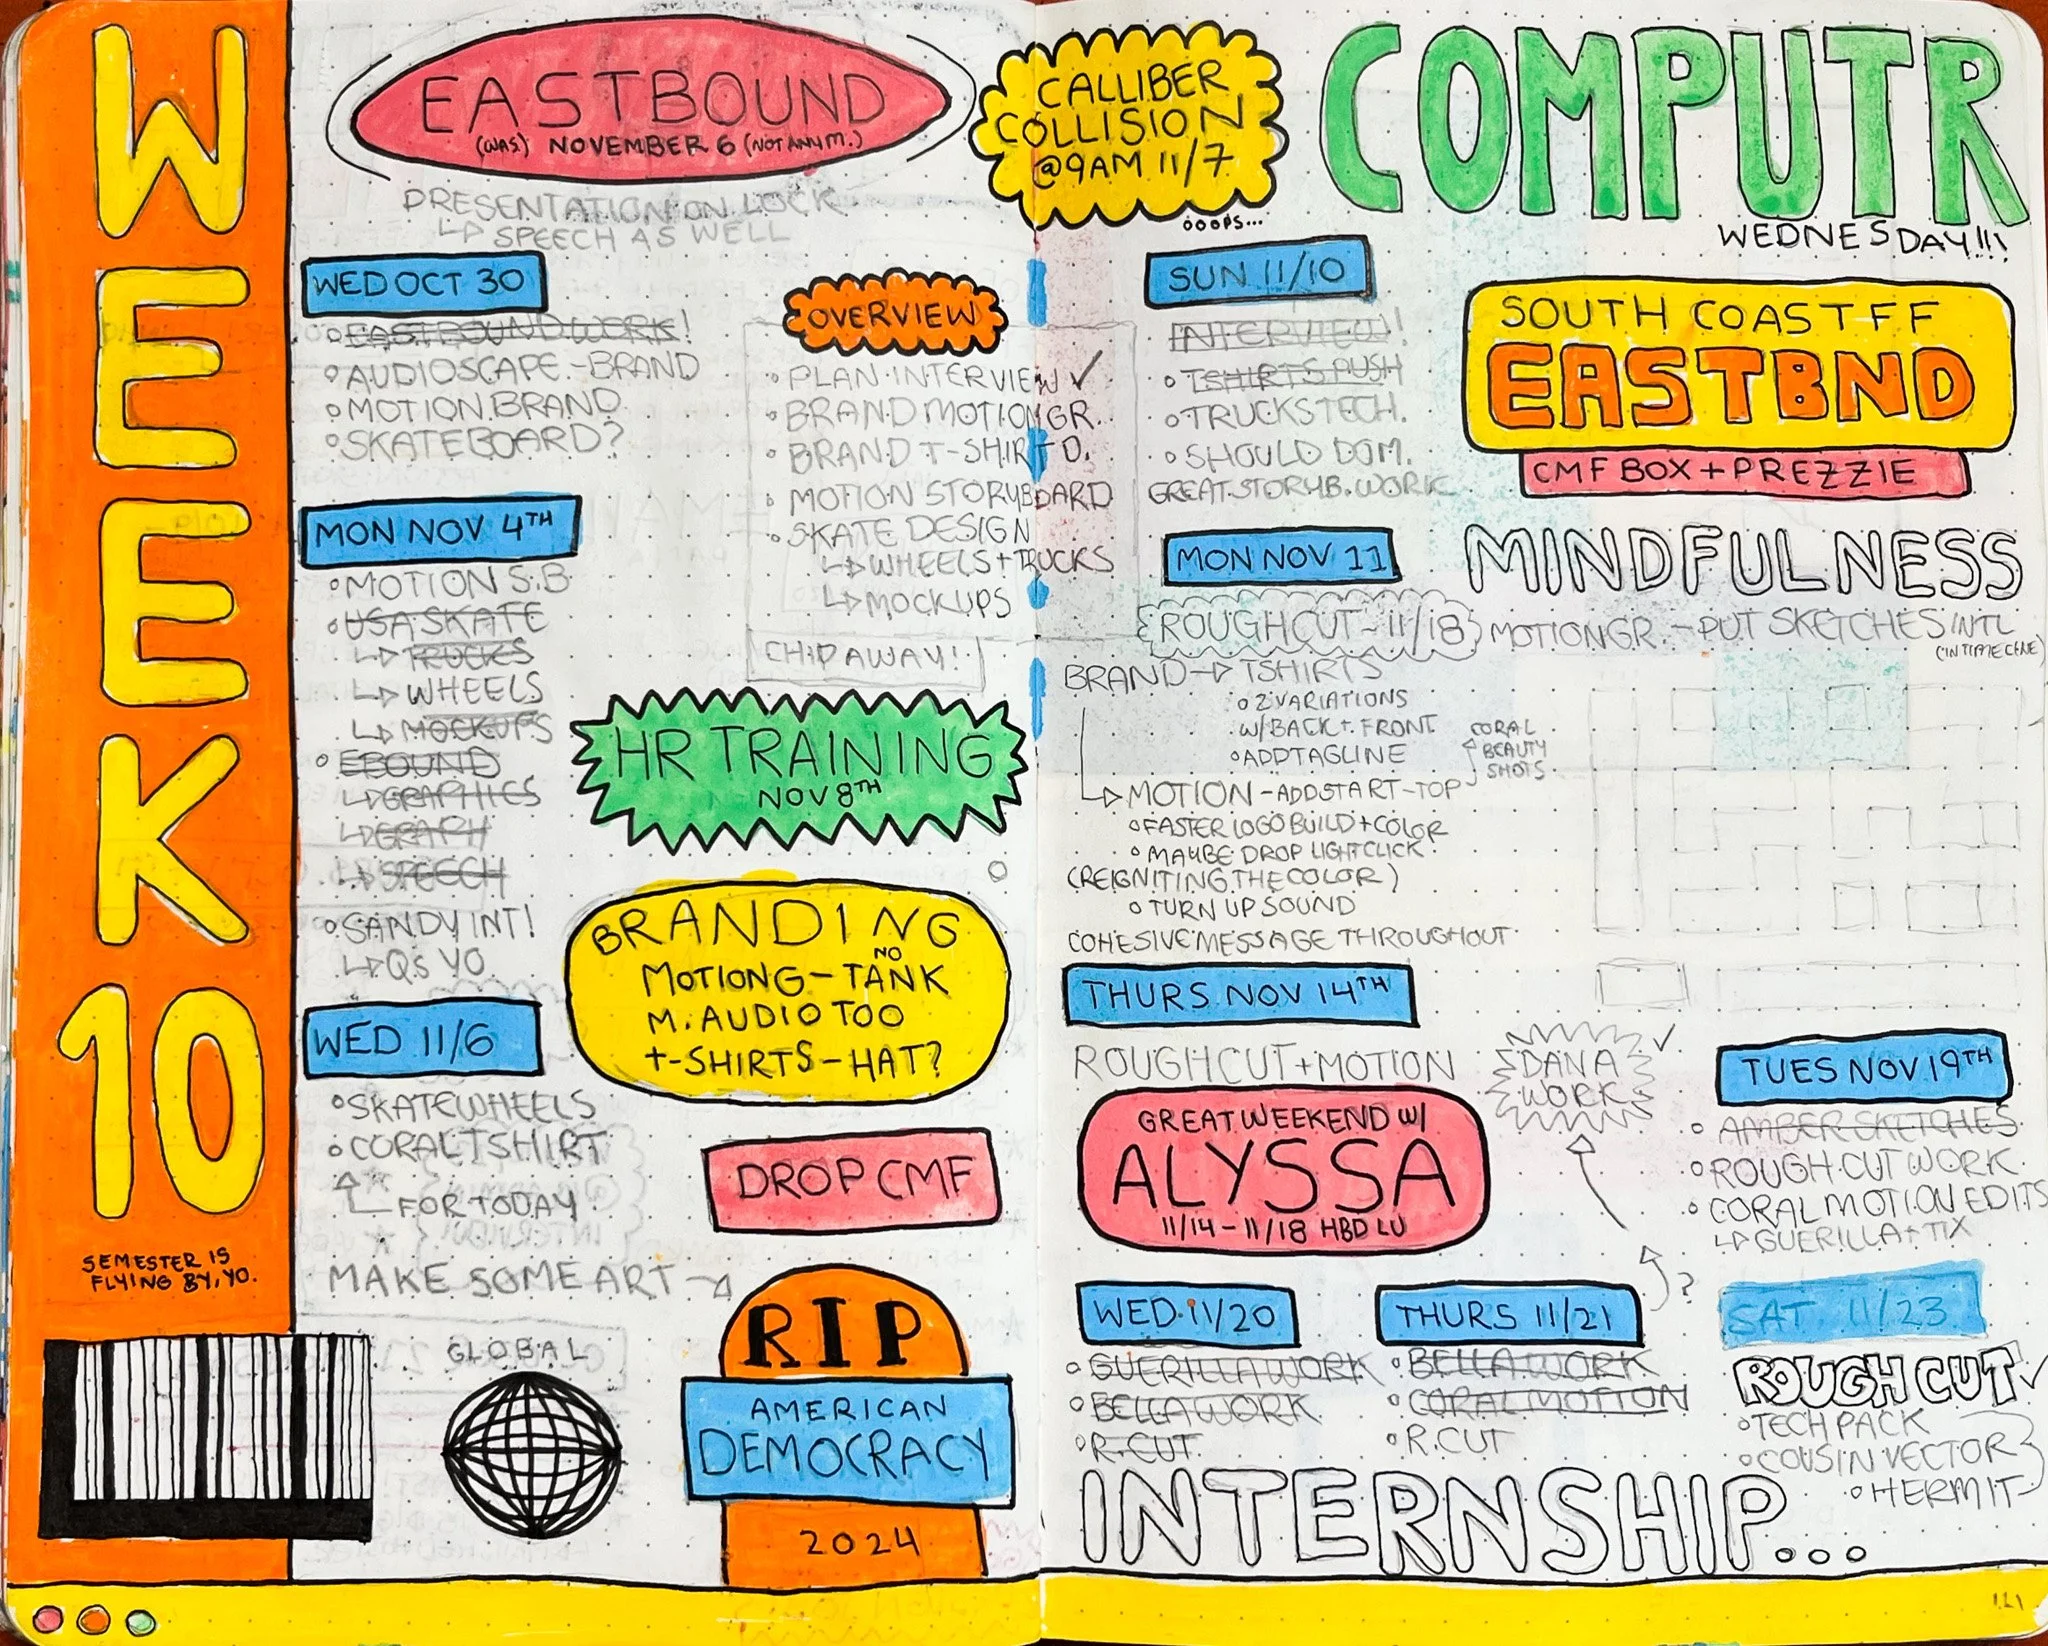 WEEK 10
SEMESTER IS
FLYING BY, YO.
EASTBOUND
(WAS) NOVEMBER 6 (NOT ANYM.)
PRESENTATION ON LOCK
SPEECH AS WELL
WED OCT 30
EASTBOUND WORK!
AUDIOSCAPE - BRAND
MOTION BRAND
SKATEBOARD?
MON NOV 4TH
MOTION S.B
USA SKATE
TRUCKS
WHEELS
MOCKUPS
EBOUND
GRAPHICS
GRAPH
SPEECH
SANDY INT!
QS YO
WED 11/6
SKATEWHEELS
CORAL TSHIRT
FOR TODAY
MAKE SOME ART
GLOBAL
OVERVIEW
PLAN INTERVIEW ✓
BRAND MOTION GR.
BRAND T-SHIRT D.
MOTION STORYBOARD
SKATE DESIGN
WHEELS + TRUCKS
MOCKUPS
CHIP AWAY!
HR TRAINING
NOV 8TH
BRANDING
NO
MOTIONG - TANK
M. AUDIO TOO
T-SHIRTS - HAT?
DROP CMF
RIP
AMERICAN
DEMOCRACY
2024
CALLIBER
COLLISION
@9AM 11/7
OOOPS...
COMPUTR
WEDNESDAY!!!
SUN 11/10
INTERVIEW!
TSHIRTS PUSH
TRUCKS TECH.
SHOULD DOM.
GREAT STORYB. WORK
SOUTH COAST FF
EASTBND
CMF BOX + PREZZIE
MON NOV 11
MINDFULNESS
ROUGHCUT - 11/18
MOTION GR. - PUT SKETCHES INTL
BRAND → TSHIRTS
2 VARIATIONS
W/ BACK + FRONT
ADD TAGLINE
CORAL
BEAUTY
SHOTS
MOTION - ADD START - TOP
FASTER LOGO BUILD + COLOR
MAYBE DROP LIGHT CLICK
(REIGNITING THE COLOR)
TURN UP SOUND
COHESIVE MESSAGE THROUGHOUT
THURS NOV 14TH
ROUGHCUT + MOTION
DANA
WORK
✓
GREAT WEEKEND W/
ALYSSA
11/14 - 11/18 HBD LU
TUES NOV 19TH
AMBER SKETCHES
ROUGH CUT WORK
CORAL MOTION EDITS
GUERILLA + TIX
WED 11/20
GUERILLA WORK
BELLA WORK
R.CUT
THURS 11/21
?
BELLA WORK
CORAL MOTION
R.CUT
SAT 11/23
ROUGH CUT ✓
TECH PACK
COUSIN VECTOR
HERMIT
INTERNSHIP...